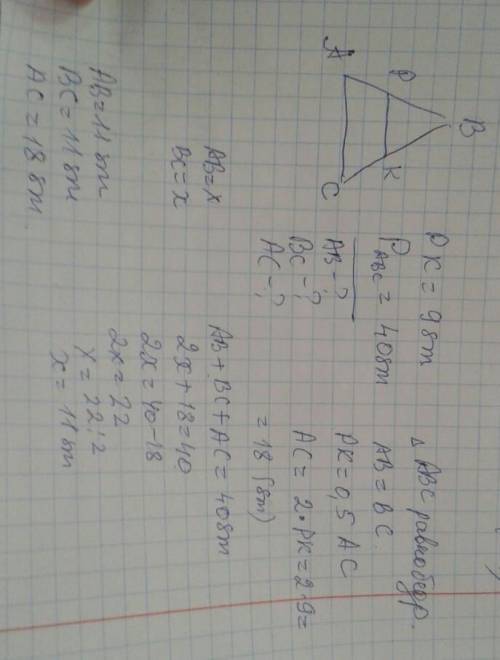 B
P
K
A
C
PK = 98m
P ABC = 408m
AB - ?
BC - ?
AC - ?
△ ABC равнобедр.
AB = BC
PK = 0,5 AC
AC = 2 · PK = 2·9 =
= 18 (8m)
AB = x
BC = x
AB + BC + AC = 408m
2x + 18 = 40
2x = 40 - 18
2x = 22
x = 22 : 2
x = 11 8m
AB = 11 8m
BC = 11 8m
AC = 18 8m.